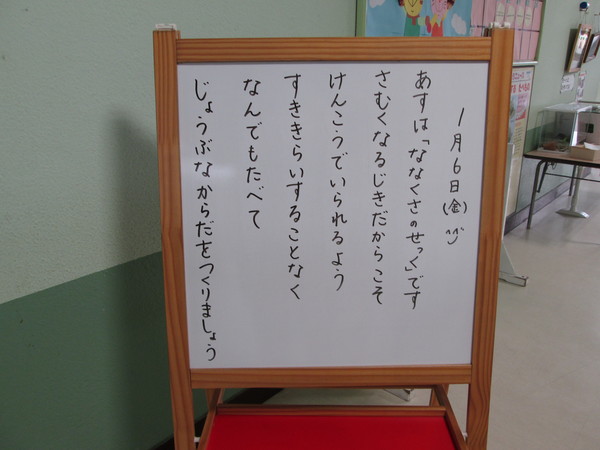 1月6日(金)
あすは「ななくさのせっく」です
さむくなるじきだからこそ
けんこうでいられるよう
すききらいすることなく
なんでもたべて
じょうぶなからだをつくりましょう